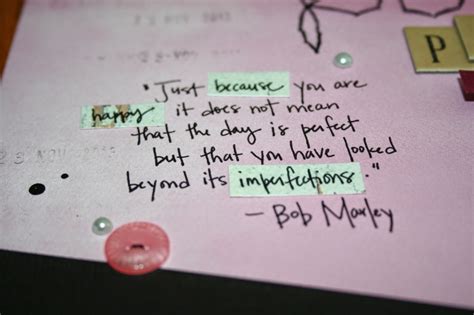 23 NOV 2013
23 NOV
"Just because you are
happy it does not mean
that the day is perfect
but that you have looked
beyond its imperfections."
- Bob Marley
23 NOV 2013
P